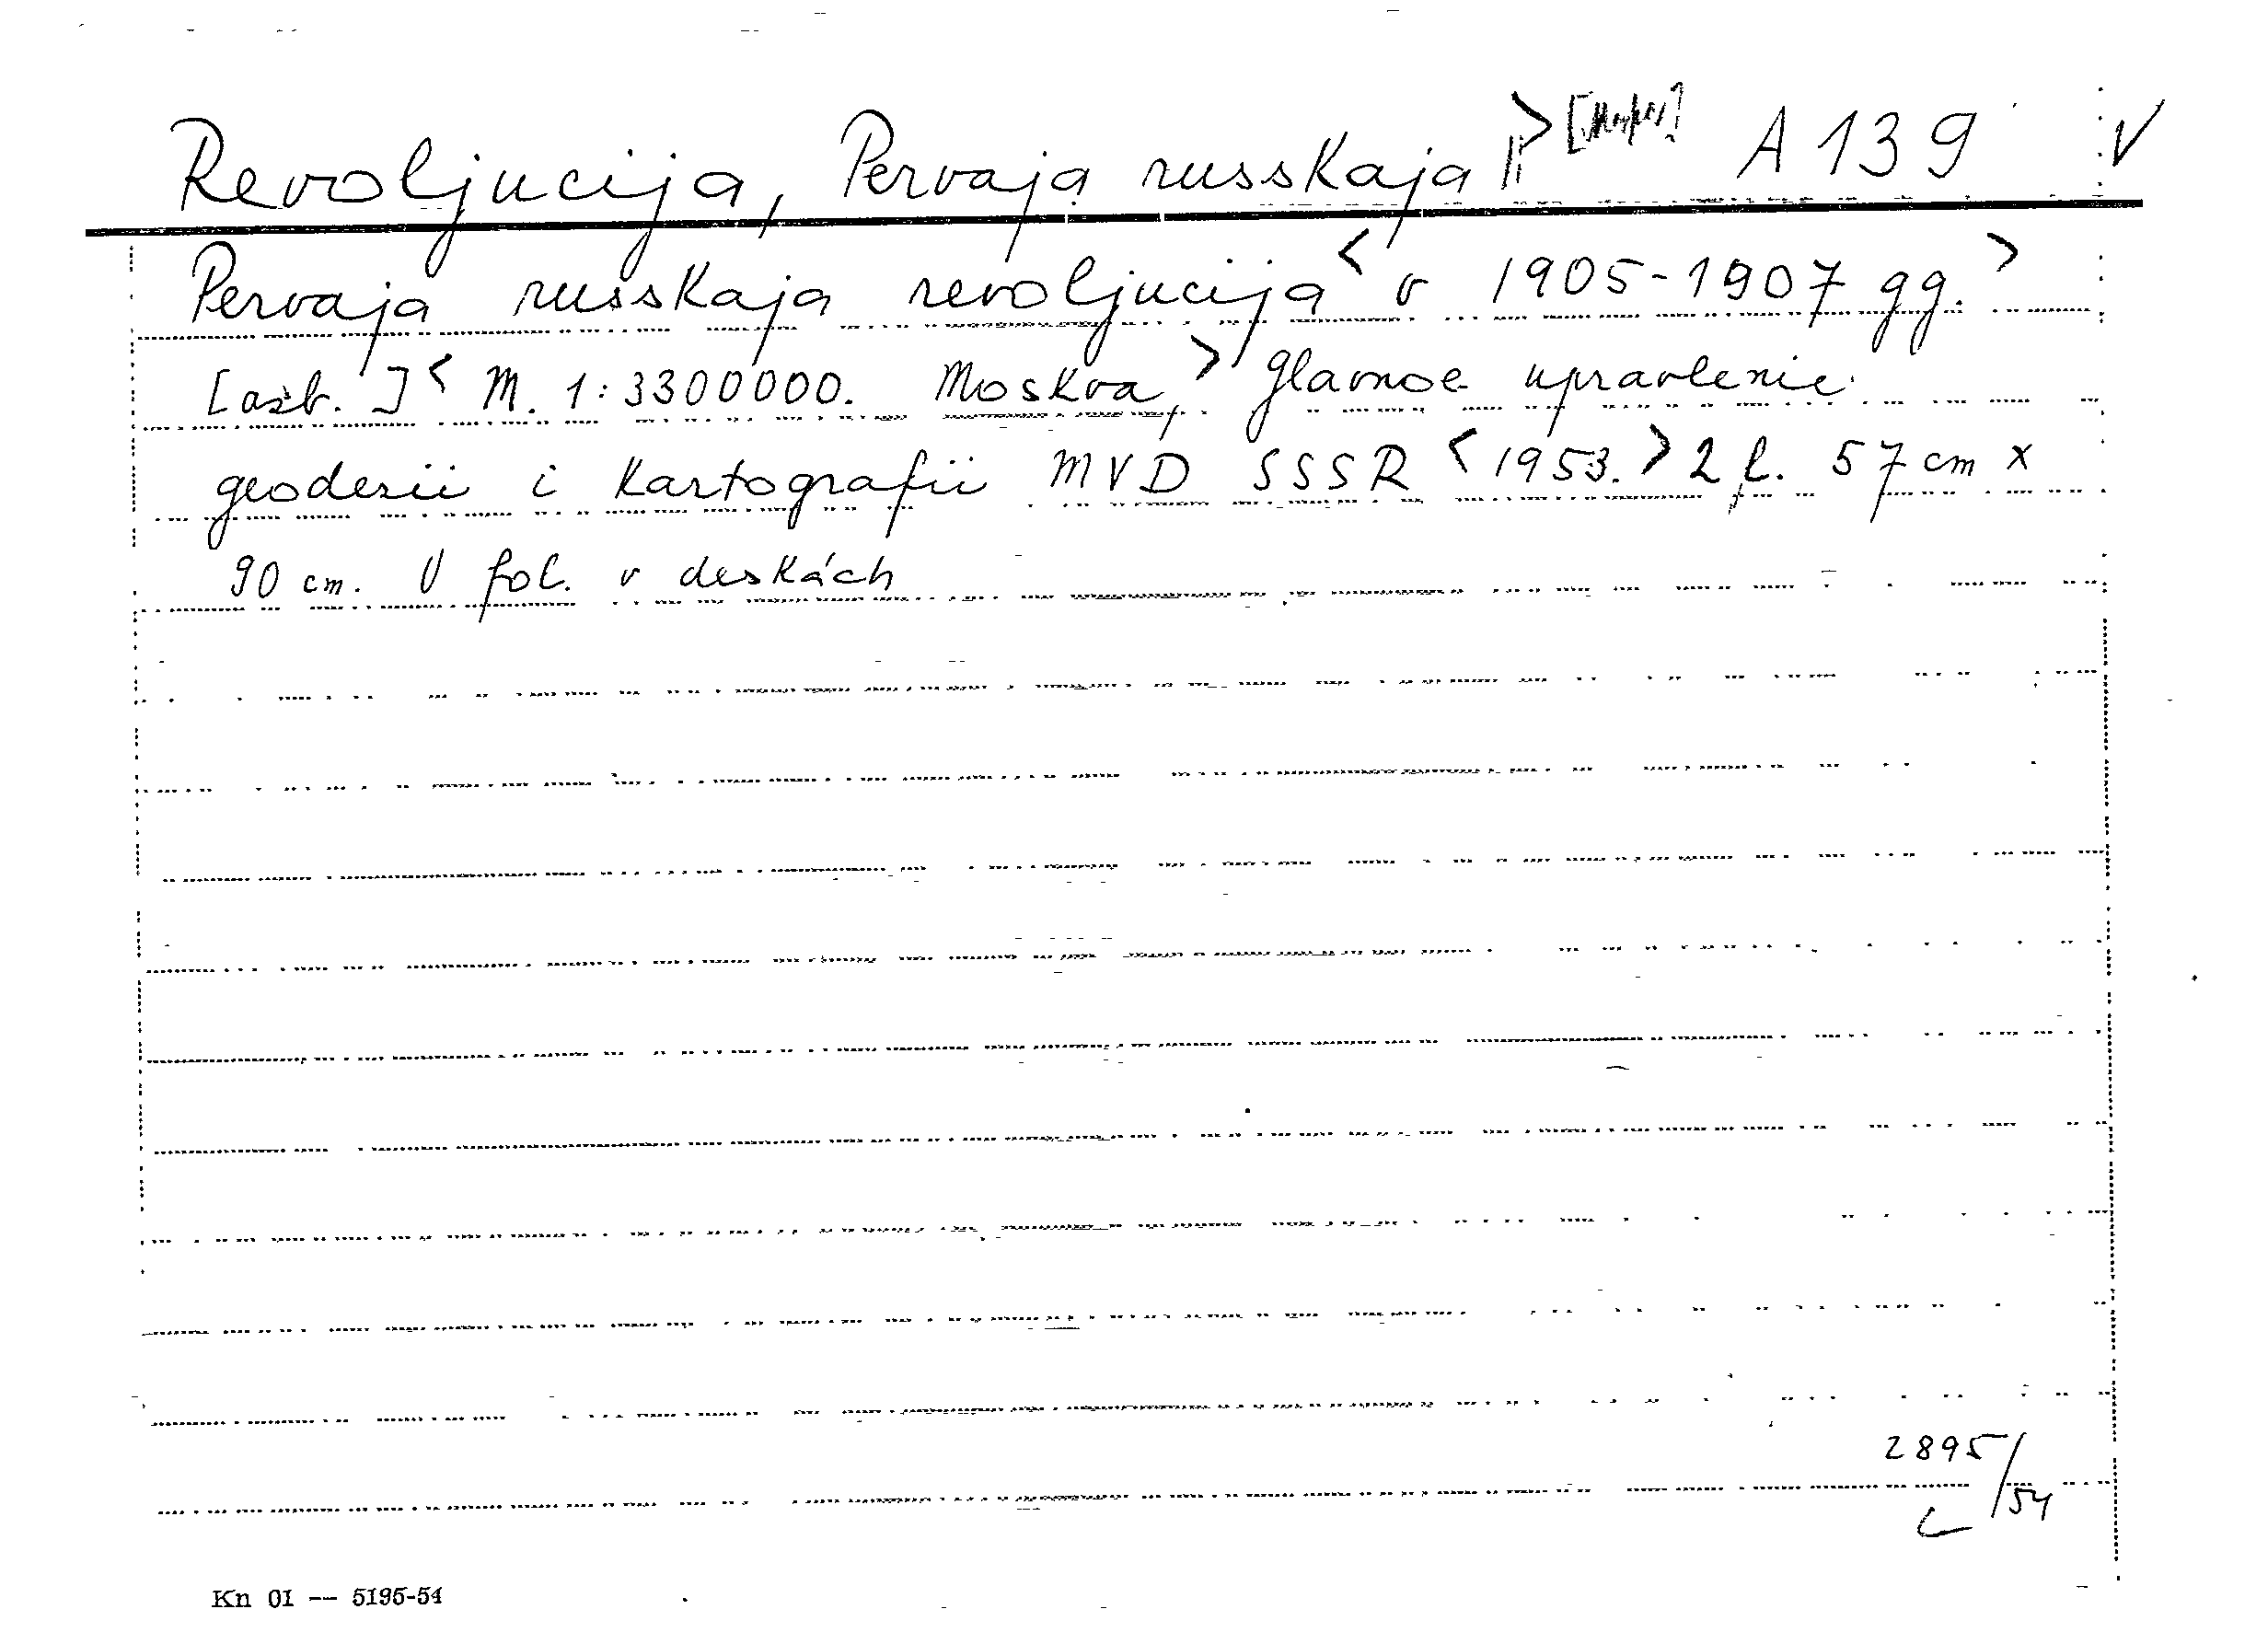 Revoljucija, Pervaja russkaja > A 139 V
Pervaja russkaja revoljucija < v 1905-1907 gg. >
[azb.] < M. 1:3300000. Moskva, > Glavnoe upravlenie
geodezii i kartografii MVD SSSR < 1953. > 2 l. 57 cm x
90 cm. V fol. v deskách
2895/54
Kn 01 -- 5195-54